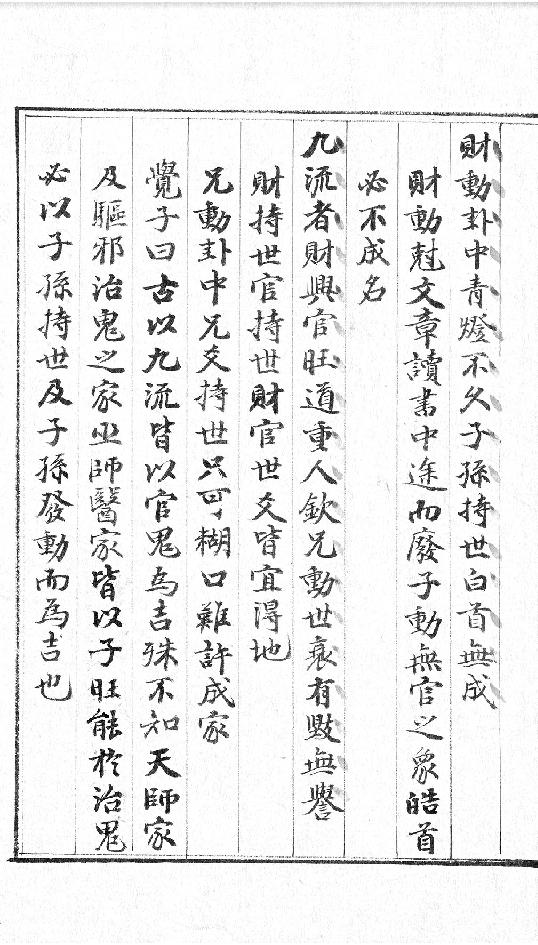 財動卦中青燈不久子孫持世白首無成
財動尅文章讀書中途而廢子動無官之象皓首
必不成名
九流者財興官旺道重人欽兄動世衰有毀無譽
財持世官持世財官世爻皆宜得地
兄動卦中兄爻持世只可糊口難許成家
覺子曰古以九流皆以官鬼為吉殊不知天師家
及驅邪治鬼之家巫師醫家皆以子旺能於治鬼
必以子孫持世及子孫發動而為吉也